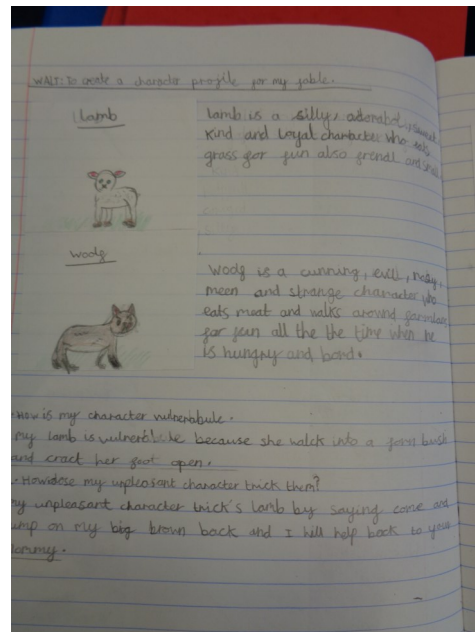 WALT: To create a character profile for my fable.
Lamb
Lamb is a silly, adorabol,
kind and Loyal character who eats
grass for fun also frendl and small
Wodg
Wodg is a cunning, evill, nasty,
meen and strange character who
eats meat and walks around
for fun all the the time when he
is hungry and bord.
How is my character vulnerabule.
my lamb is vulnerable because she walck into a forn bush
and cract her foot open.
How dose my unpleasant character trick them?
my unpleasant character trick's lamb by saying come and
ump on my big brown back and I will help back to your
mommy.